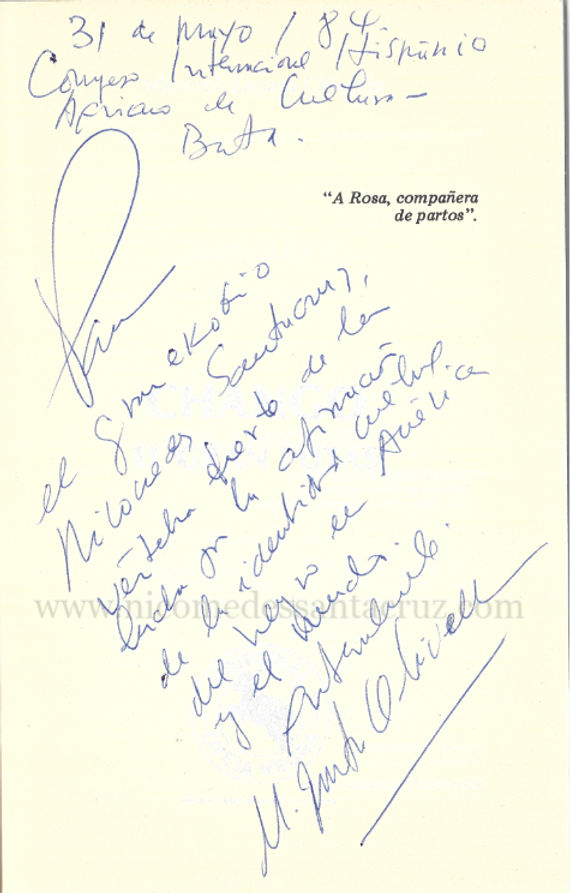 31 de mayo / 84
Congreso Internacional Hispánio
Africano de Cultura -
Bata.
"A Rosa, compañera
de partos".
Para
el gran ekobio
Nicomedes Santacruz,
vértebra fuerte de la
lucha por la afirmación
de la identidad cultural
del negro en América
y el mundo.
Fraternalmente.
M. Zapata Olivella
www.nicomedessantacruz.com